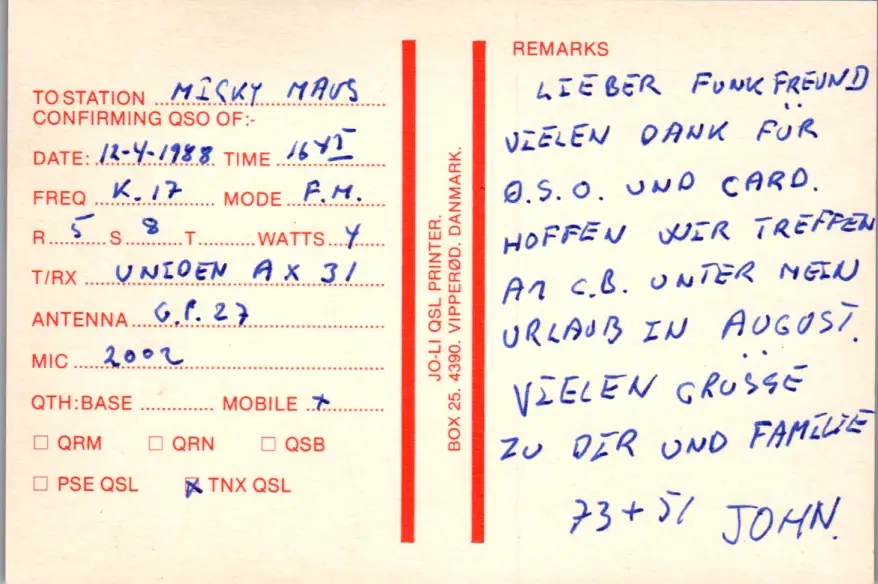 TO STATION MICKY MAUS
CONFIRMING QSO OF:-
DATE: 12-4-1988 TIME 16 VI
FREQ K. 17 MODE F.M.
R 5 S 8 T WATTS 4
T/RX UNIDEN AX 31
ANTENNA G.P. 27
MIC 2002
QTH: BASE MOBILE +
QRM QRN QSB
PSE QSL X TNX QSL
JO-LI QSL PRINTER.
BOX 25. 4390. VIPPERØD. DANMARK.
REMARKS
LIEBER FUNKFREUND
VIELEN DANK FÜR
Q.S.O. UND CARD.
HOFFEN WIR TREFFEN
AM C.B. UNTER MEIN
URLAUB IN AUGUST.
VIELEN GRÜSSE
ZU DIR UND FAMILIE
73 + 51 JOHN.